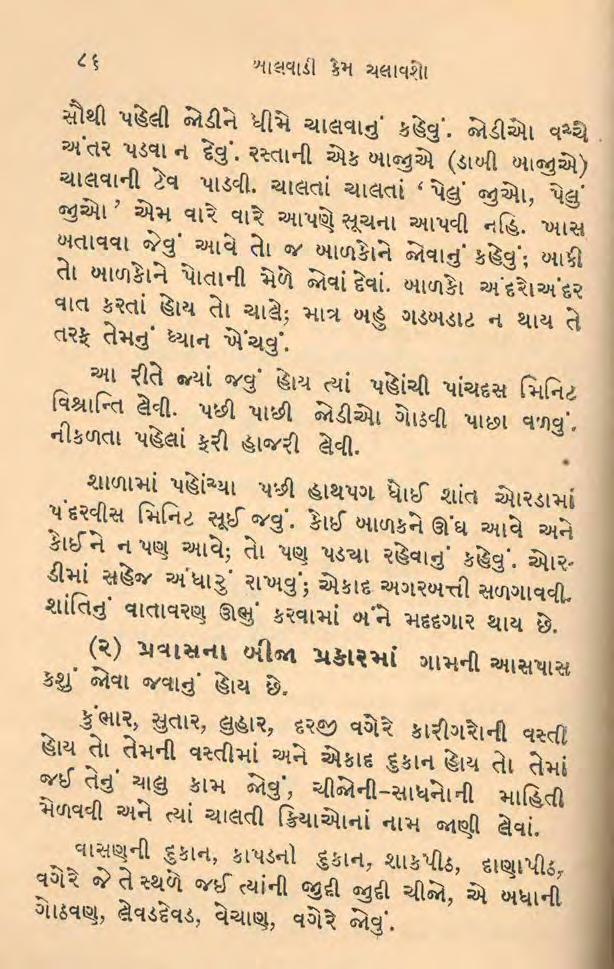 ૮૬
બાલવાડી કેમ ચલાવશો
સૌથી પહેલી જોડીને ધીમે ચાલવાનું કહેવું. જોડીઓ વચ્ચે
અંતર પડવા ન દેવું. રસ્તાની એક બાજુએ (ડાબી બાજુએ)
ચાલવાની ટેવ પાડવી. ચાલતાં ચાલતાં ‘પેલું જુઓ, પેલું
જુઓ’ એમ વારે વારે આપણે સૂચના આપવી નહિ. ખાસ
બતાવવા જેવું આવે તો જ બાળકોને જોવાનું કહેવું; બાકી
તો બાળકોને પોતાની મેળે જોવાં દેવાં. બાળકો અંદરોઅંદર
વાત કરતાં હોય તો ચાલે; માત્ર બહુ ગડબડાટ ન થાય તે
તરફ તેમનું ધ્યાન ખેંચવું.
આ રીતે જ્યાં જવું હોય ત્યાં પહોંચી પાંચદસ મિનિટ
વિશ્રાન્તિ લેવી. પછી પાછી જોડીઓ ગોડવી પાછા વળવું.
નીકળતા પહેલાં ફરી હાજરી લેવી.
શાળામાં પહોંચ્યા પછી હાથપગ ધોઈ શાંત ઓરડામાં
પંદરવીસ મિનિટ સૂઈ જવું. કોઈ બાળકને ઊંઘ આવે અને
કોઈને ન પણ આવે; તો પણ પડ્યા રહેવાનું કહેવું. ઓર-
ડીમાં સહેજ અંધારું રાખવું; એકાદ અગરબત્તી સળગાવવી.
શાંતિનું વાતાવરણ ઊભું કરવામાં બંને મદદગાર થાય છે.
(૨) પ્રવાસના બીજા પ્રકારમાં ગામની આસપાસ
કશું જોવા જવાનું હોય છે.
કુંભાર, સુતાર, લુહાર, દરજી વગેરે કારીગરોની વસ્તી
હોય તો તેમની વસ્તીમાં અને એકાદ દુકાન હોય તો તેમાં
જઈ તેનું ચાલુ કામ જોવું, ચીજોની-સાધનોની માહિતી
મેળવવી અને ત્યાં ચાલતી ક્રિયાઓનાં નામ જાણી લેવાં.
વાસણની દુકાન, કાપડની દુકાન, શાકપીઠ, દાણાપીઠ,
વગેરે જે તે સ્થળે જઈ ત્યાંની જુદી જુદી ચીજો, એ બધાની
ગોઠવણ, લેવડદેવડ, વેચાણ, વગેરે જોવું.